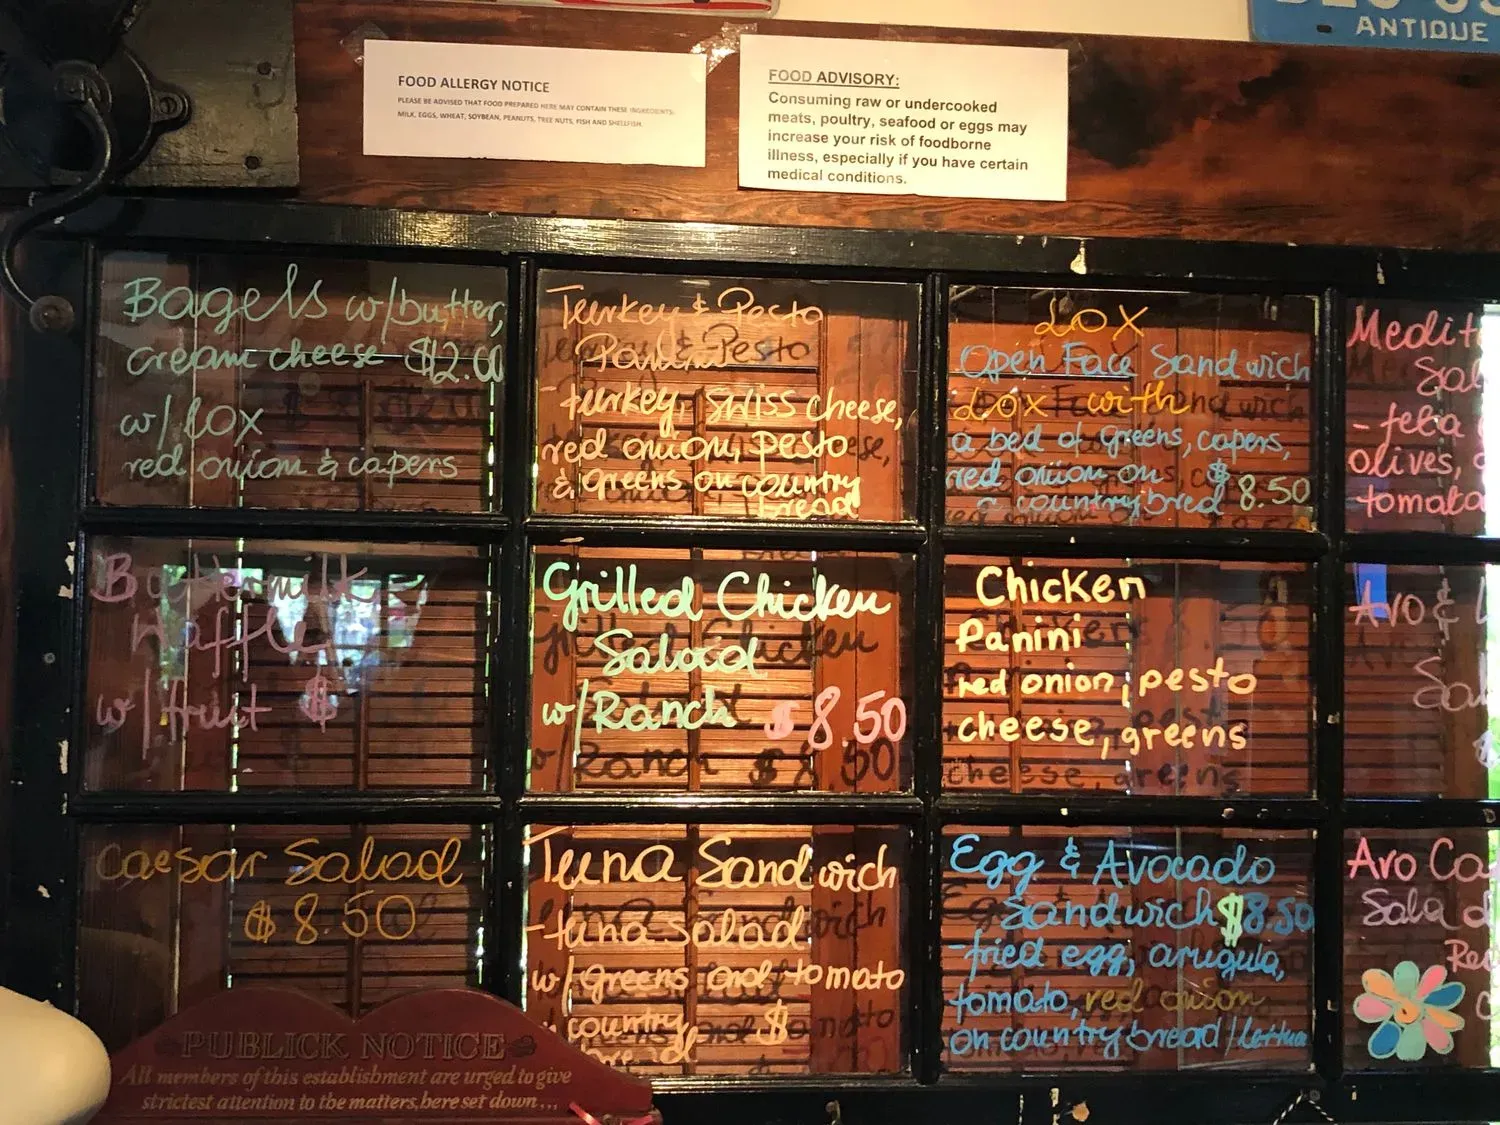 ANTIQUE
FOOD ALLERGY NOTICE
PLEASE BE ADVISED THAT FOOD PREPARED HERE MAY CONTAIN THESE INGREDIENTS:
MILK, EGGS, WHEAT, SOYBEAN, PEANUTS, TREE NUTS, FISH AND SHELLFISH.
FOOD ADVISORY:
Consuming raw or undercooked
meats, poultry, seafood or eggs may
increase your risk of foodborne
illness, especially if you have certain
medical conditions.
Bagels w/butter,
cream cheese $2.00
w/ lox
red onion & capers
Turkey & Pesto
Panini
-turkey, swiss cheese,
red onion, pesto
& greens on country
bread
LOX
Open Face Sandwich
Lox with
a bed of greens, capers,
red onion on $8.50
a country bred
Medit
Sal
- feta
olives,
tomato
Buttermilk
Waffle
w/ fruit $
Grilled Chicken
Salad
w/Ranch $8.50
Chicken
Panini
red onion, pesto
cheese, greens
Avo &
Caesar Salad
$8.50
Tuna Sandwich
-tuna salad
w/greens and tomato
country $
bread
Egg & Avocado
Sandwich $8.50
-fried egg, arugula,
tomato, red onion
on country bread/lettuce
Avo Ca
Salad
PUBLICK NOTICE
All members of this establishment are urged to give
strictest attention to the matters, here set down...